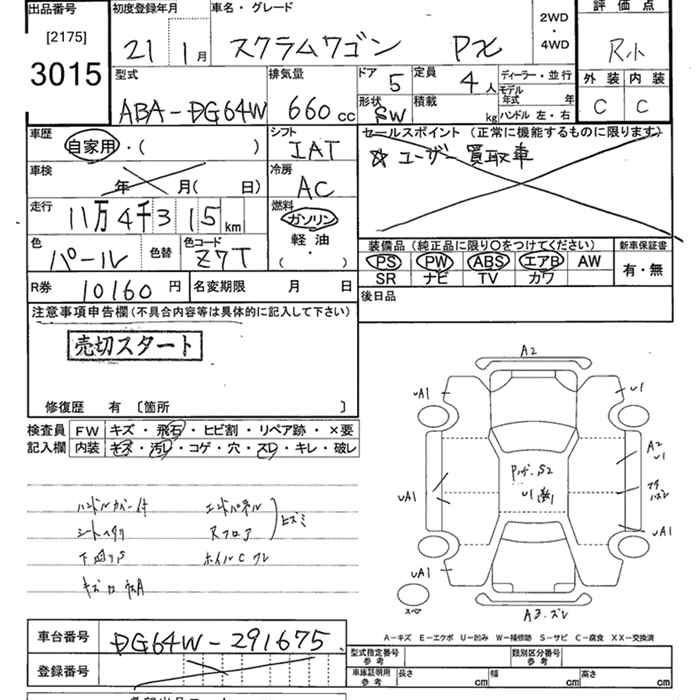 出品番号
[2175]
3015
初度登録年月
21 1月
車名・グレード
スクラムワゴン PX
2WD
・
4WD
評価点
R小
外装 内装
C C
型式
ABA-DG64W
排気量
660cc
ドア
5
定員
4人
形状
SW
積載
kg
ディーラー・並行
モデル
年式 年
ハンドル 左・右
車歴
自家用・( )
車検
年 月( 日)
走行
11万4千315km
色
パール
色替
色コード
Z7T
シフト
IAT
冷房
AC
燃料
ガソリン
軽油
( ・ )
セールスポイント (正常に機能するものに限ります)
☆ユーザー買取車
装備品 (純正品に限り○をつけてください)
PS PW ABS エアB AW
SR ナビ TV カワ
新車保証書
有・無
R券
10160円
名変期限 月 日
後日品
注意事項申告欄(不具合内容等は具体的に記入して下さい)
売切スタート
修復歴 有 〔箇所 〕
検査員
記入欄
FW キズ・飛石・ヒビ割・リペア跡・×要
内装 キズ・汚レ・コゲ・穴・スレ・キレ・破レ
ハンドルカバー付 エンドパネル
シートヘタリ Rフロア
ヒズミ
下回りS ホイルCワレ
A2
uA1 u1
A2
u1
uA1
u1
uA1
uA1
uA1
A3.ズレ
スペア
A-キズ E-エクボ U-凹み W-補修跡 S-サビ C-腐食 XX-交換済
車台番号
DG64W-291675
登録番号
型式指定番号
参考
類別区分番号
参考
車庫証明用
参考
長さ cm 幅 cm 高さ cm